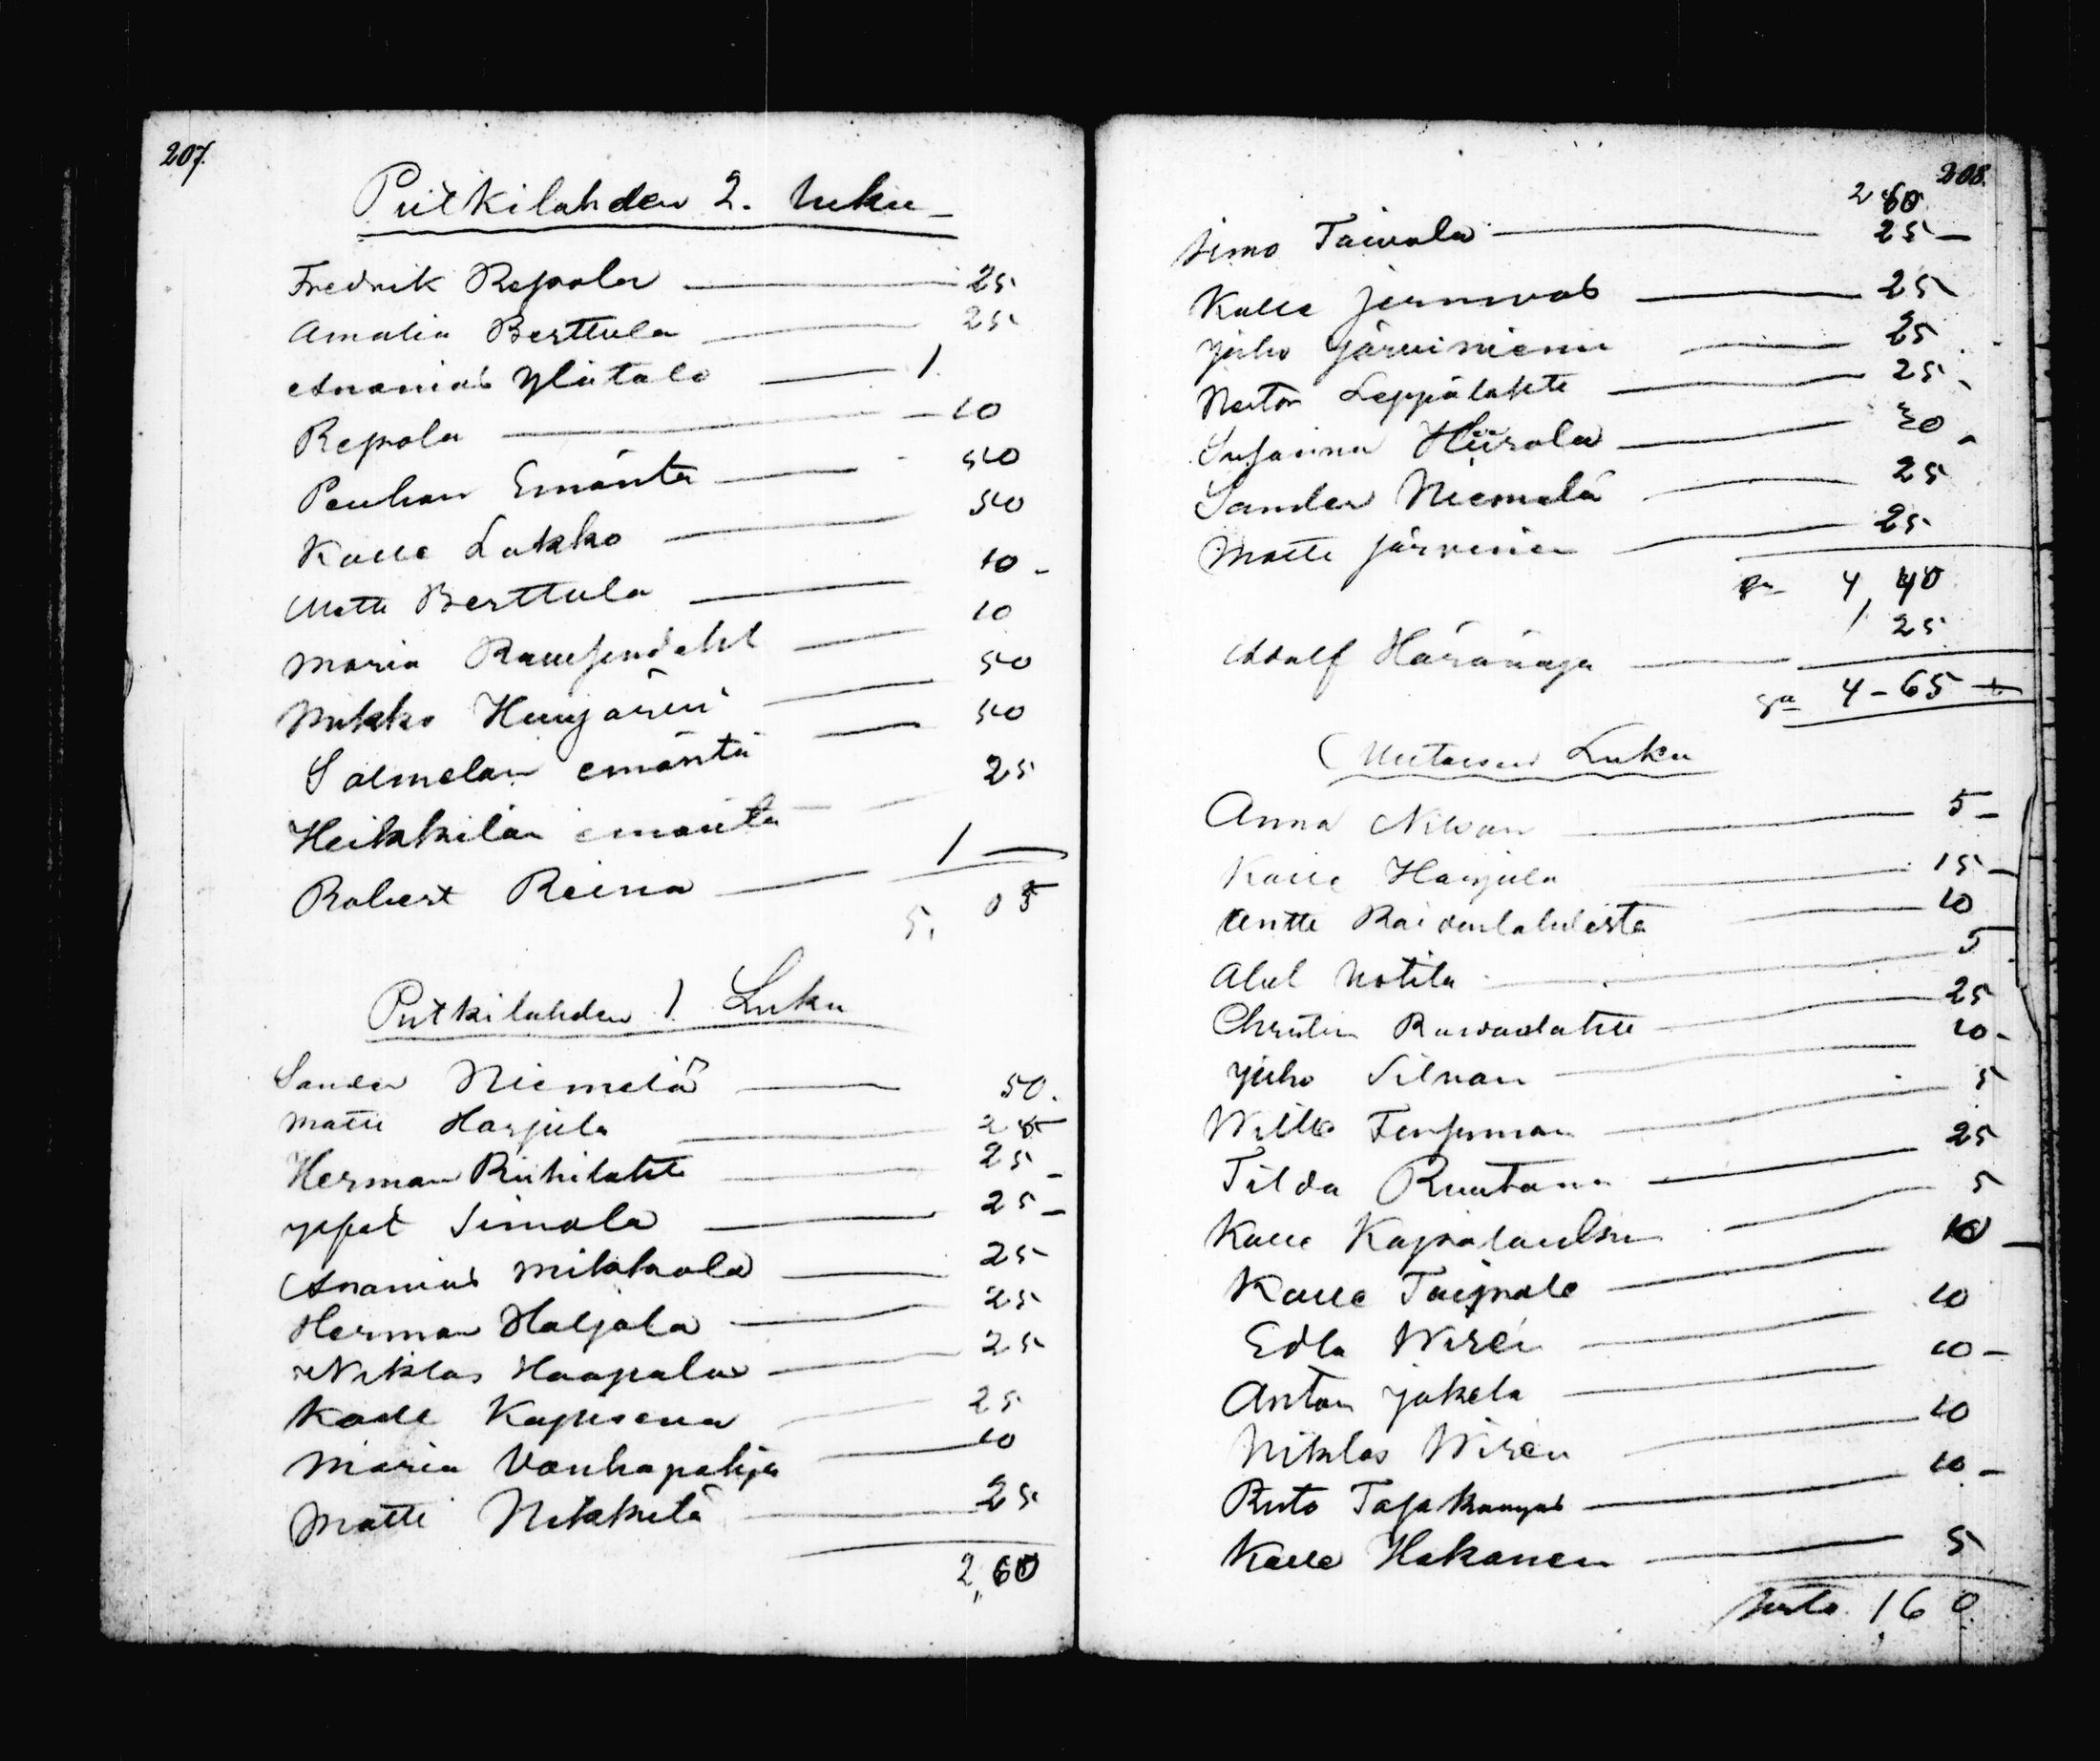 207.
Putkilahden 2. luku
Fredrik Repola 25
Amalia Berttula 25
Ananias Ylätalo 1.
Repola 10
Peuhan Emäntä 50
Kalle Lukko 50
Matti Berttula 10 -
Maria 10
Mikko Huujärvi 50
Salmelan emäntä 50
Heikkilän emäntä 25
Robert Reina 1 —
5, 05
Putkilahden 1 Luku
Sander Niemelä 50.
Matti Harjula 25
Herman Riihilahti 25 -
Jafet Simola 25 -
Ananias Mikkola 25
Herman Haljala 25
Niklas Haapala 25
Kalle 25
Maria Vanhapohja 10
Matti Nikkilä 25
2,60
208.
2 60
Simo Taivala 25 —
Kalle Jernvas 25
Juho Järviniemi 25
Nestor Leppälahti 25
Susanna Hiirola 30
Sander Niemelä 25
Matti Järvinen 25
4, 40
Adolf Häränoja 25
4 - 65
Luku
Anna Nilvan 5 -
Kalle Harjula 15 -
Antti 10
Abel Notila 5
Christin 25
Juho Silvan 10 -
Wille 5
Tilda Ruutana 25
Kalle 5
Kalle Taipale 10
Edla Wirén 10
Anton Jokela 10 -
Niklas Wirén 10
Ruto 10 -
Kalle Hakanen 5
1,60